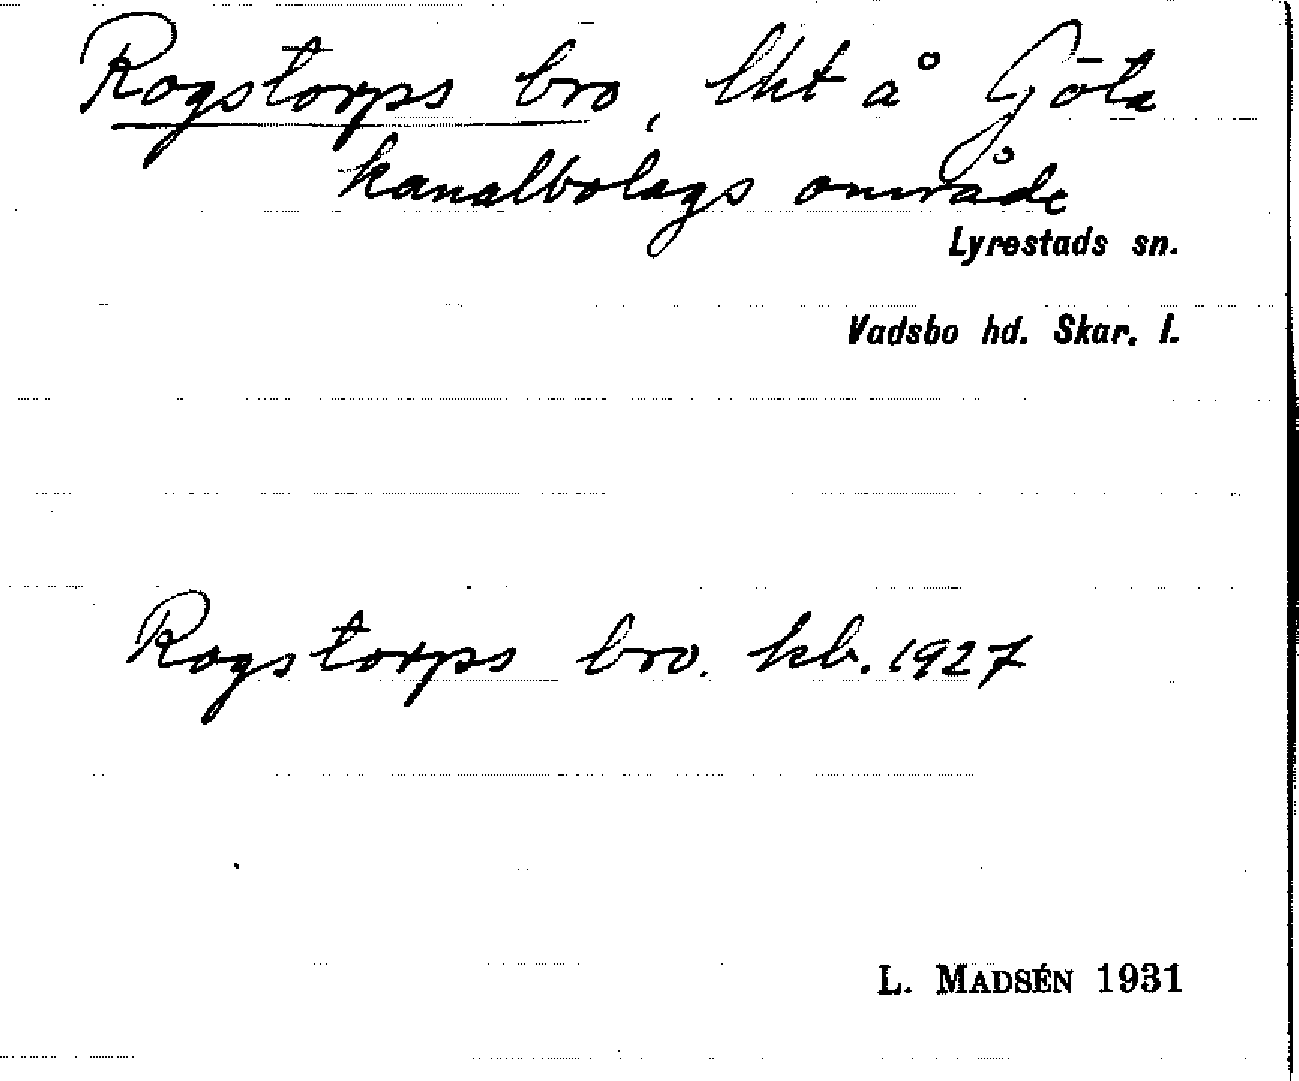 Rogstorps bro, lht å Göta
kanalbolags område
Lyrestads sn.
Vadsbo hd. Skar. l.
Rogstorps bro. kb. 1927
L. MADSÉN 1931